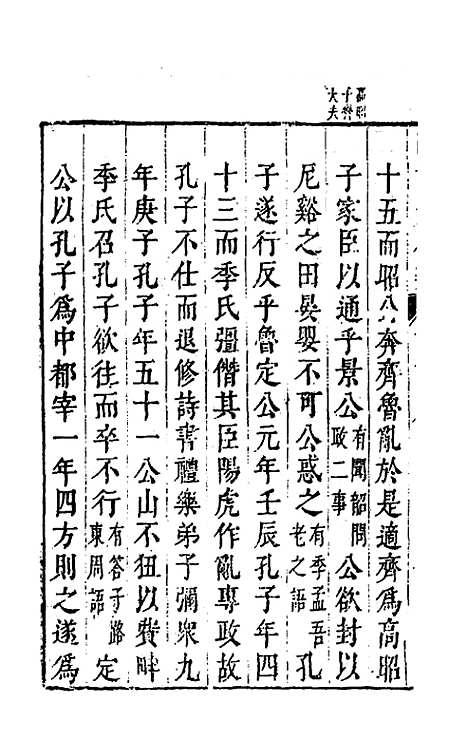 高昭
子齊
大夫
十五而昭公奔齊魯亂於是適齊爲高昭
子家臣以通乎景公有聞韶問政二事公欲封以
尼谿之田晏嬰不可公惑之有季孟吾老之語孔
子遂行反乎魯定公元年壬辰孔子年四
十三而季氏彊僭其臣陽虎作亂專政故
孔子不仕而退修詩書禮樂弟子彌衆九
年庚子孔子年五十一公山不狃以費畔
季氏召孔子欲往而卒不行有答子路東周語定
公以孔子爲中都宰一年四方則之遂爲